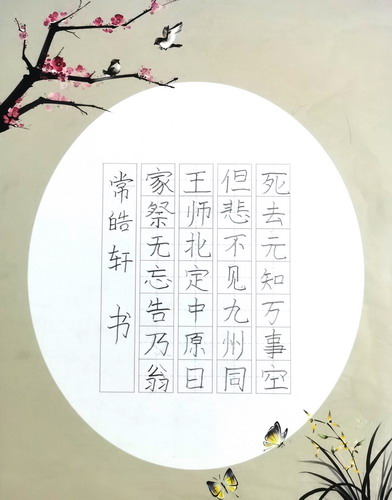 死去元知万事空
但悲不见九州同
王师北定中原日
家祭无忘告乃翁
常皓轩 书